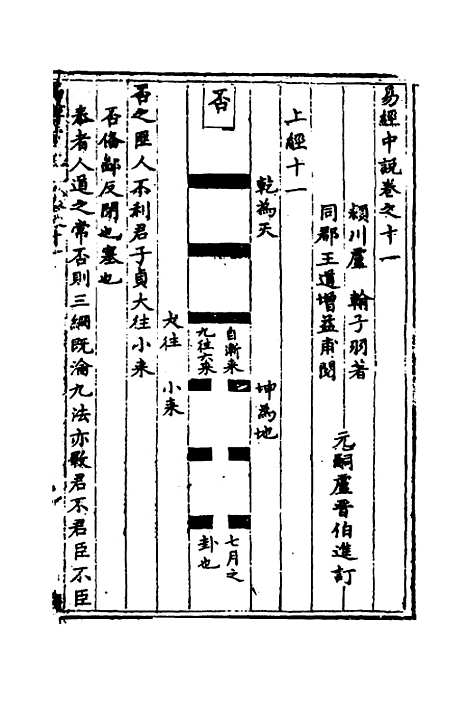 易經中說卷之十一
潁川盧 翰子羽著
同郡王道增益甫閱
元嗣盧晋伯進訂
上經十一
乾為天
坤為地
否
自漸來
九往六來
七月之
卦也
大往 小來
否之匪人不利君子貞大往小來
否備鄙反閉也塞也
泰者人道之常否則三綱既淪九法亦斁君不君臣不臣